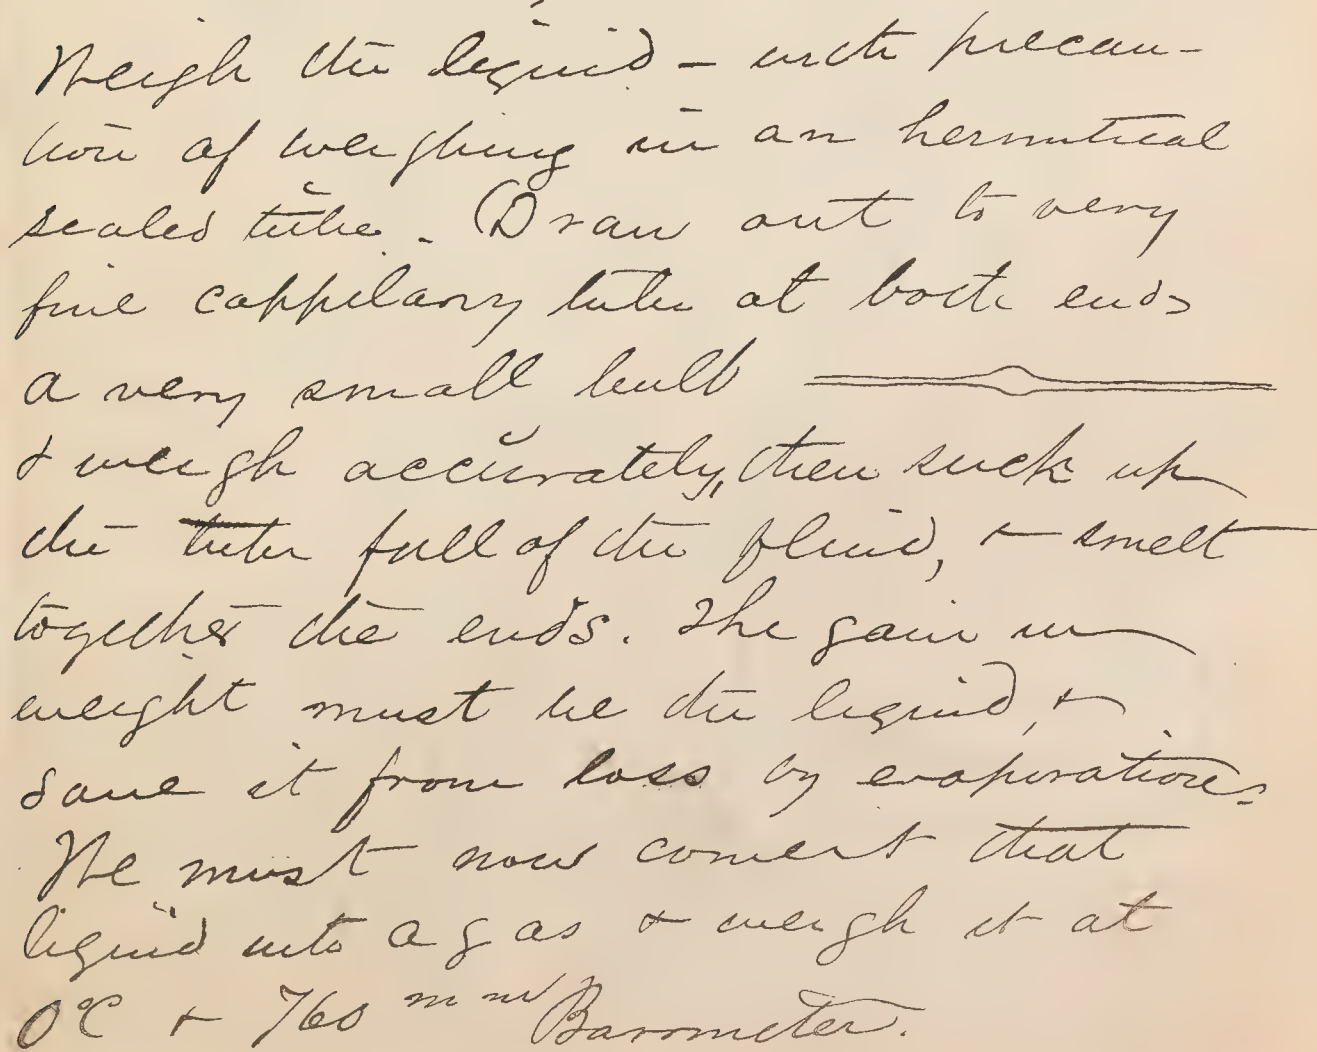 Weigh the liquid - with precau-
tion of weighing in an hermitical
sealed tube. (Draw out to very
fine cappilary tube at both ends
a very small bulb
& weigh accurately, then suck up
the tube full of the fluid, & smelt
together the ends. The gain in
weight must be the liquid, &
save it from loss by evaporation.
We must now convert that
liquid into a gas & weigh it at
0°C & 760 mm Barometer.